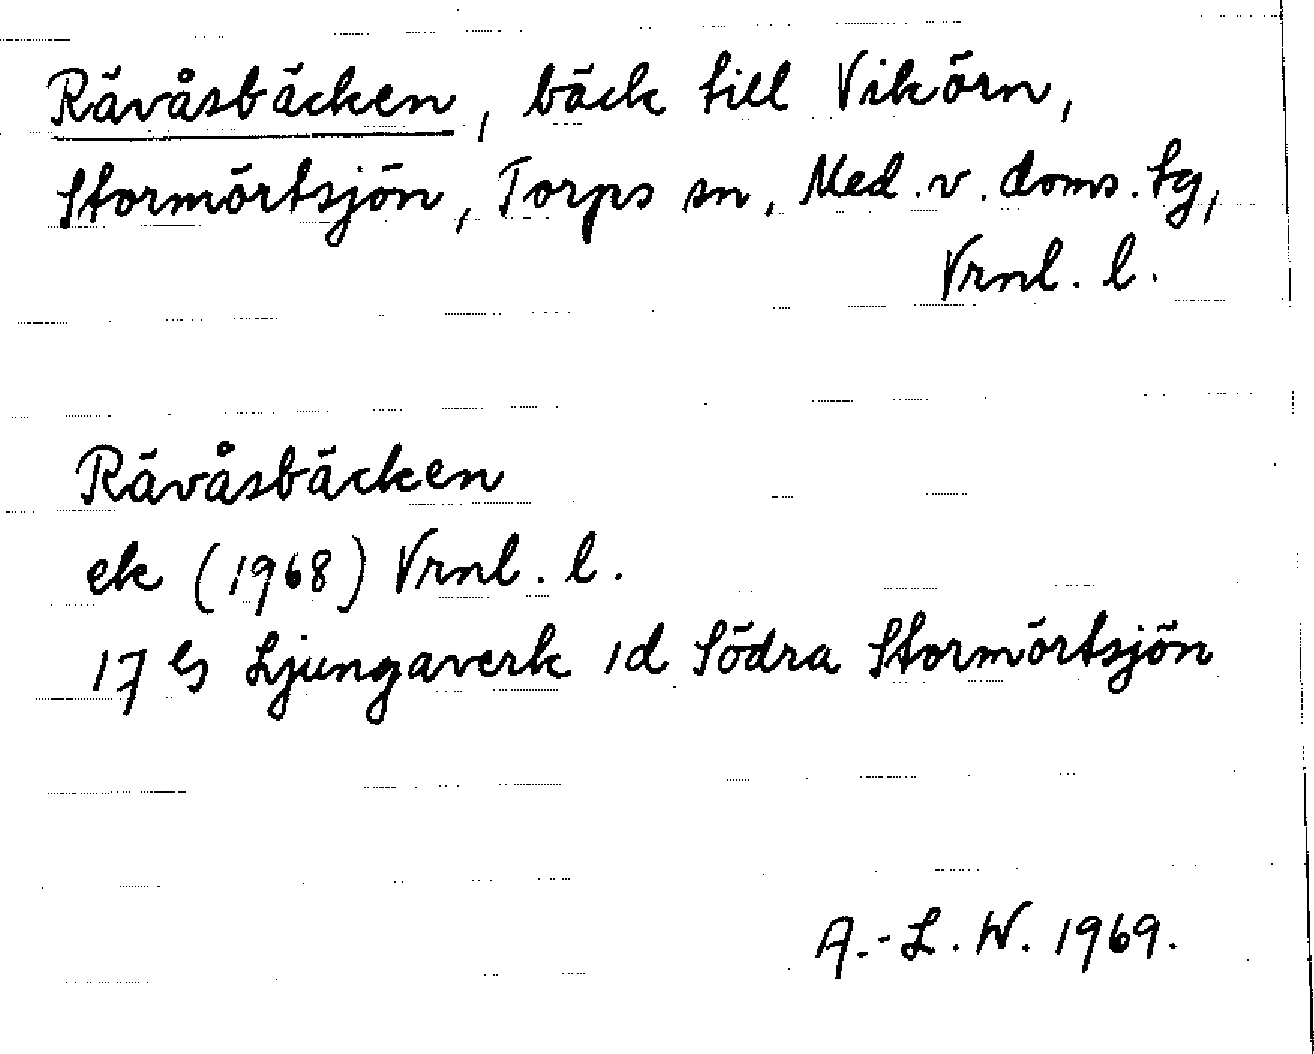 Rävåsbäcken, bäck till Vikörn,
Stormörtsjön, Torps sn, Med. v. doms. tg,
Vrnl. l.
Rävåsbäcken
ek (1968) Vrnl. l.
17 G Ljungaverk 1d Södra Stormörtsjön
A.-L. W. 1969.